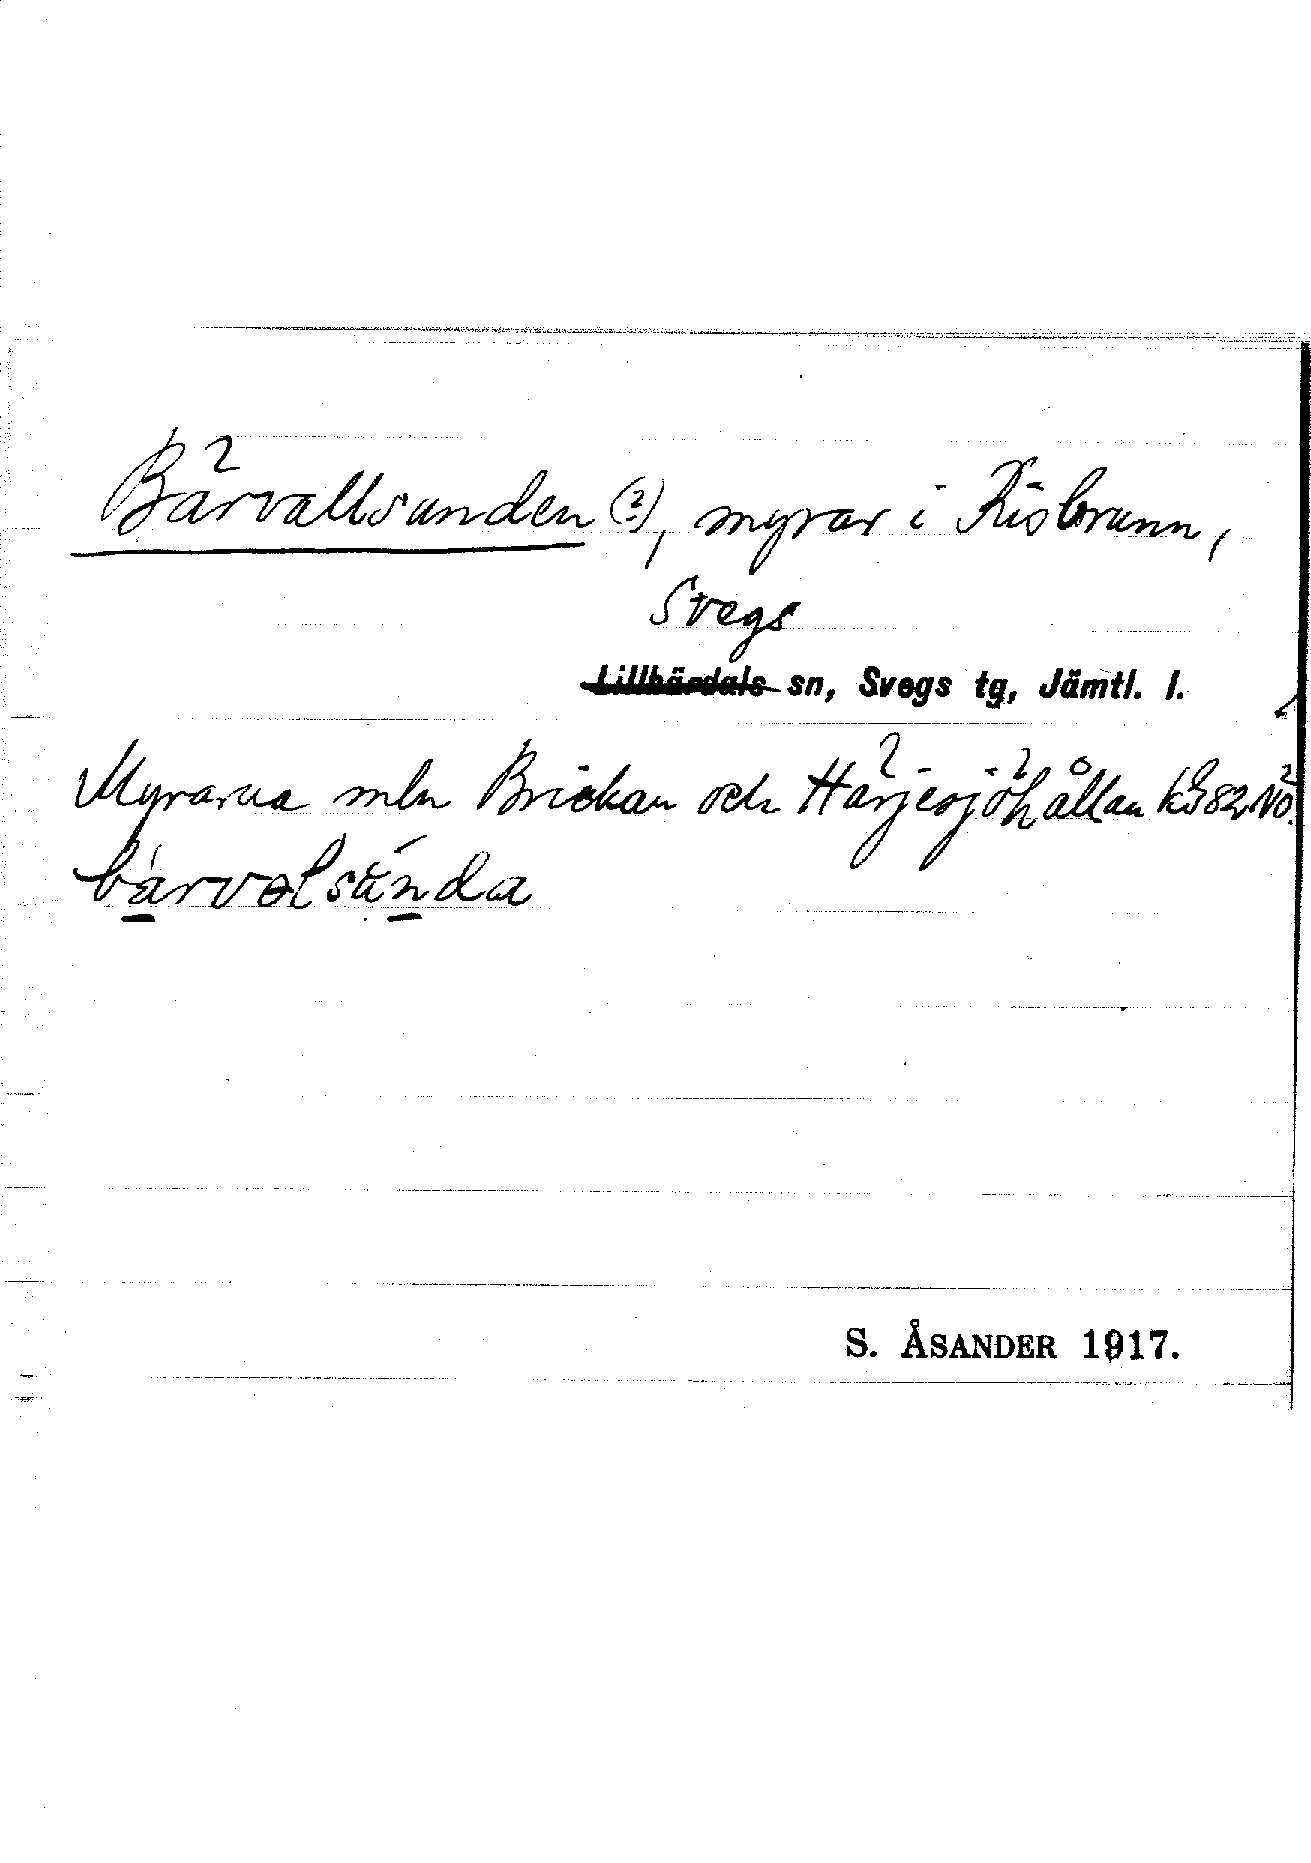 Bärvallsunden (?), myrar i Risbrunn,
Svegs
Lillhärdals sn, Svegs tg, Jämtl. l.
Myrarna mln Brickan och Härjesjöhållan 82 NÖ.
bàrvəlsúnda
S. ÅSANDER 1917.